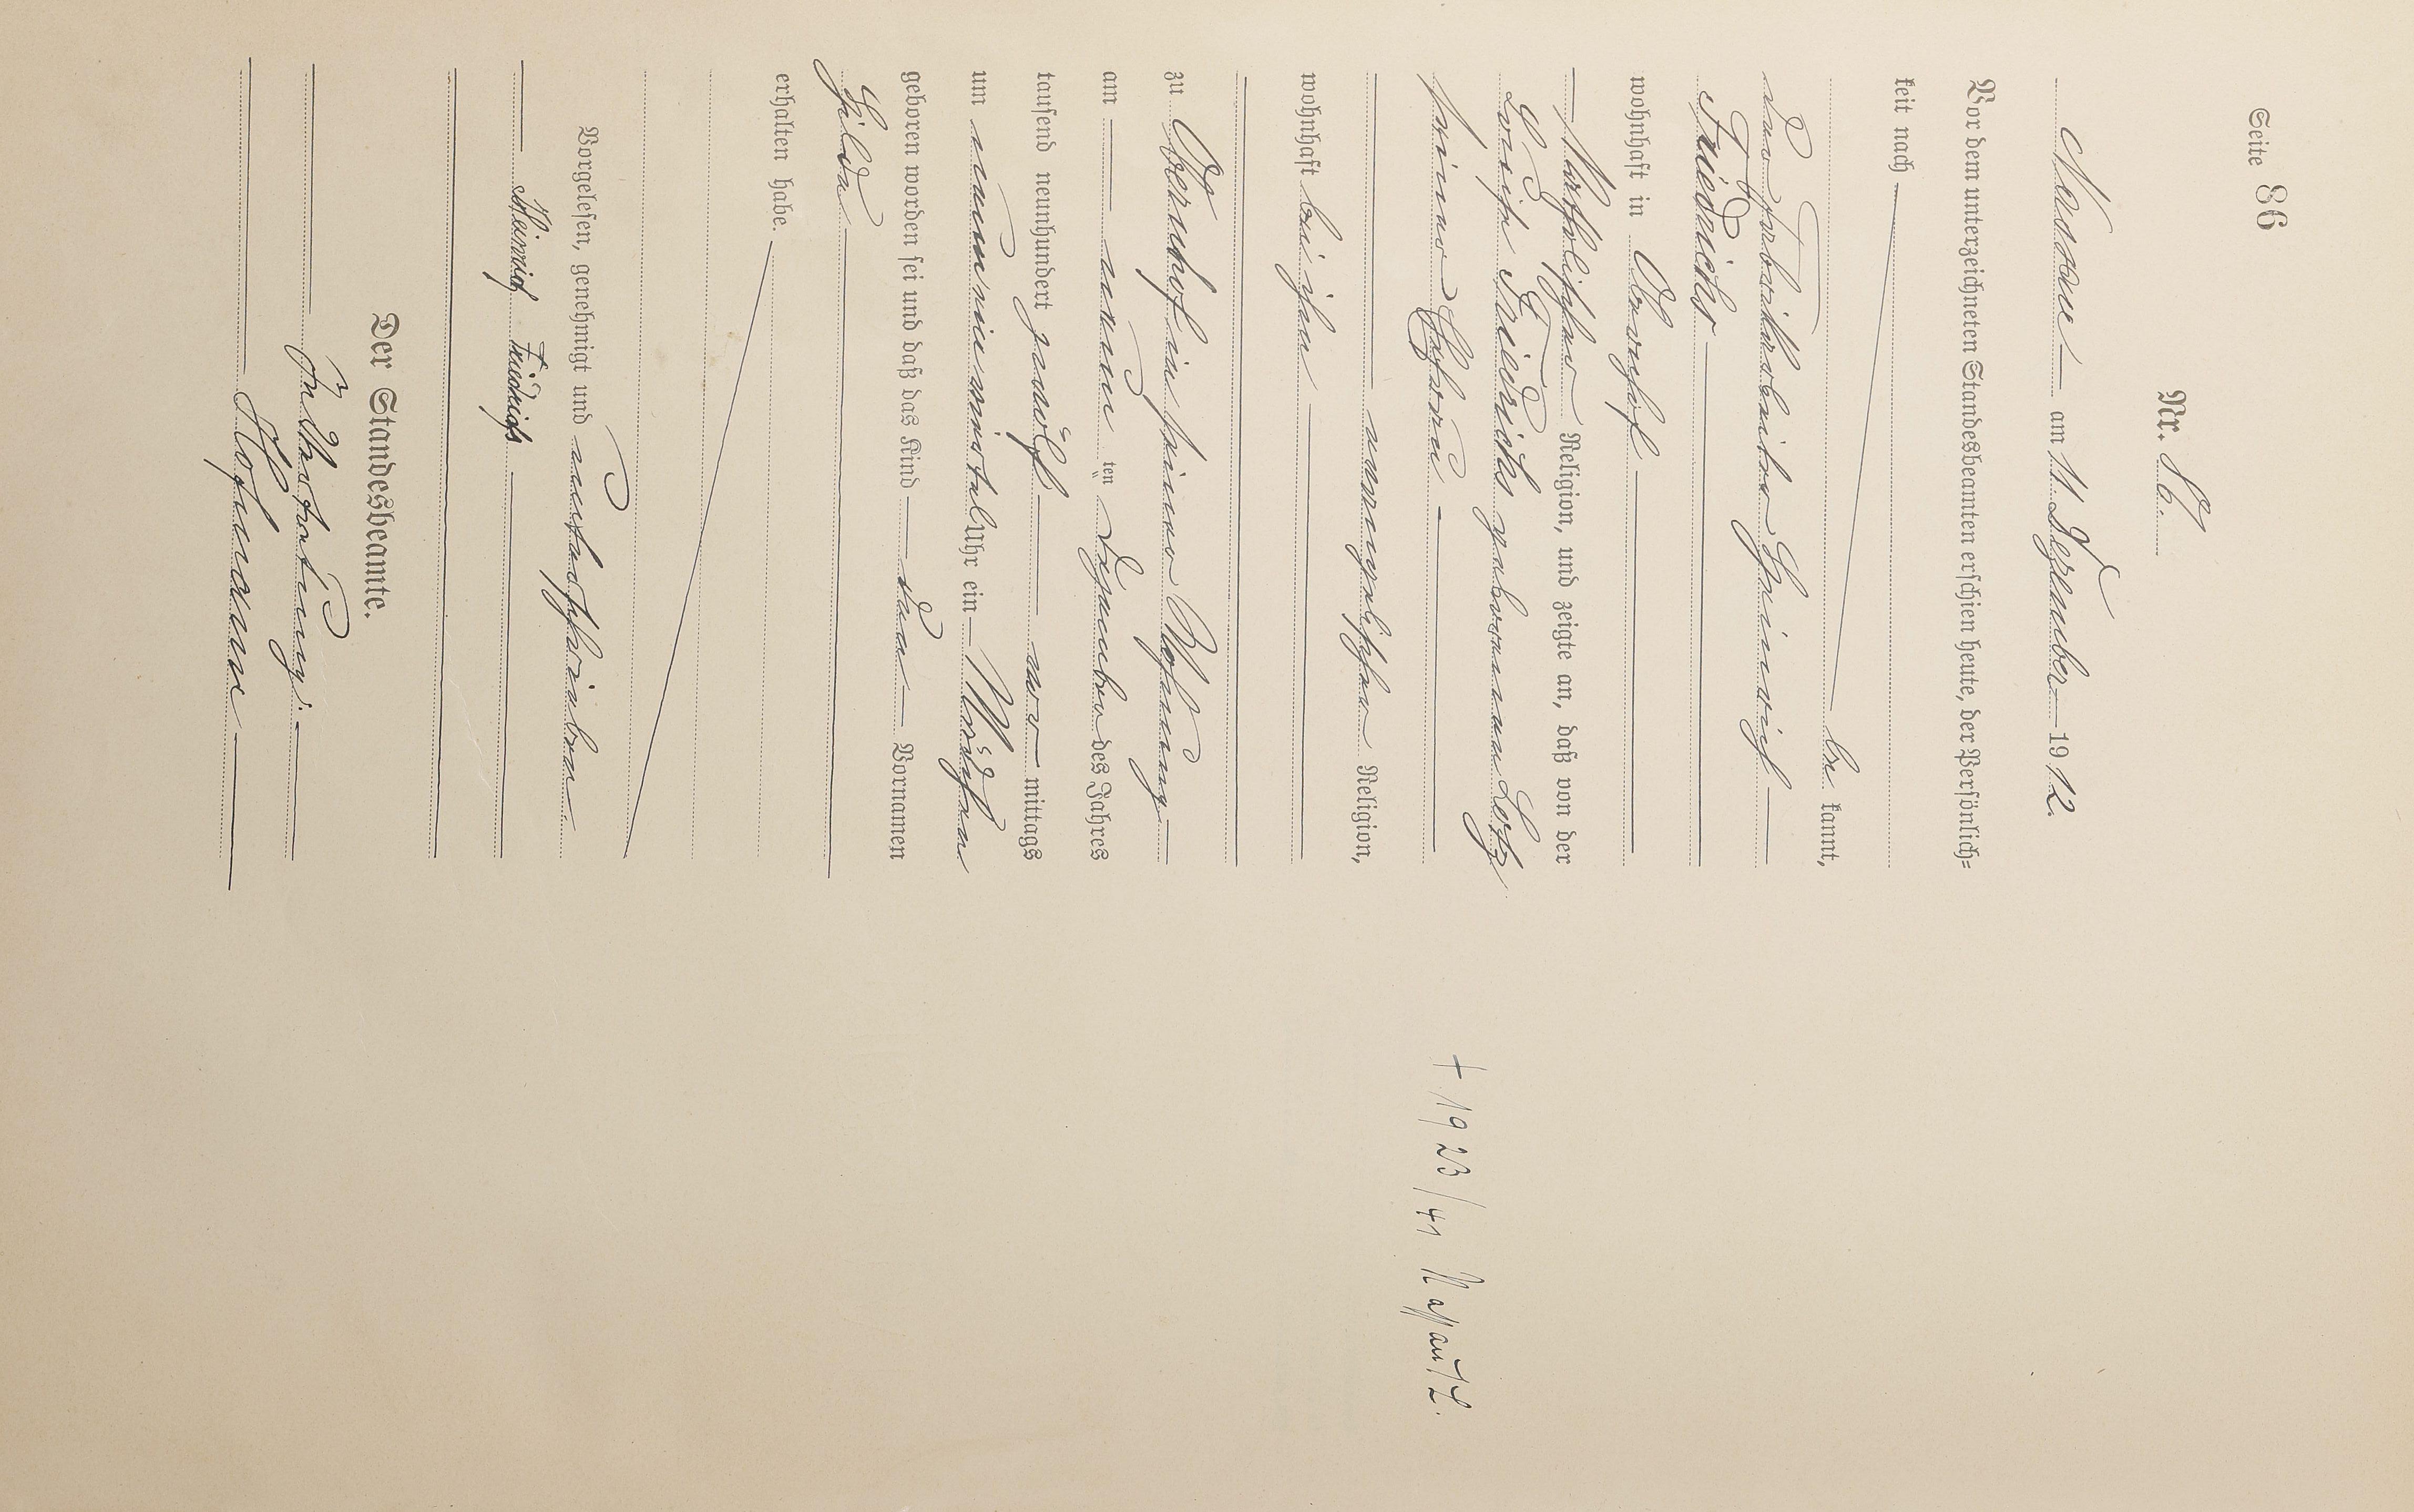 Seite 86
Nr. 86.
Nassau am 11. Dezember 1912.
Vor dem unterzeichneten Standesbeamten erschien heute, der Persönlich=
keit nach
be kannt,
der Fabrikarbeiter Heinrich
Friedrichs
wohnhaft in Obernhof
katholischer Religion, und zeigte an, daß von der
Luise Friedrichs geborenen Lotz
seiner Ehefrau
evangelischer Religion,
wohnhaft bei ihm
zu Obernhof in seiner Wohnung
am neunten Dezember des Jahres
tausend neunhundert zwölf vor mittags
um neun ein viertel Uhr ein Mädchen
geboren worden sei und daß das Kind den Vornamen
Hilda
erhalten habe.
Vorgelesen, genehmigt und unterschrieben
Heinrich Friedrichs
Der Standesbeamte.
In Vertretung:
Hofmann
+ 1923/41 Nassau/L.